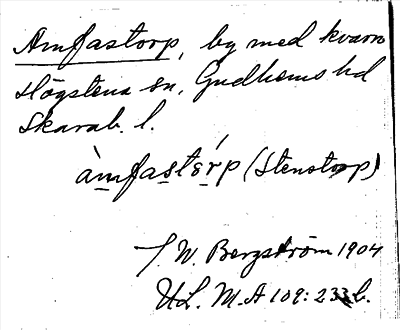 Amfastorp, by med kvarn
Högstena sn, Gudhems hd
Skarab. l.
àmfastɛŕp (Stenstorp)
T. W. Bergström 1904
U.L. M.A 109: 233 b.